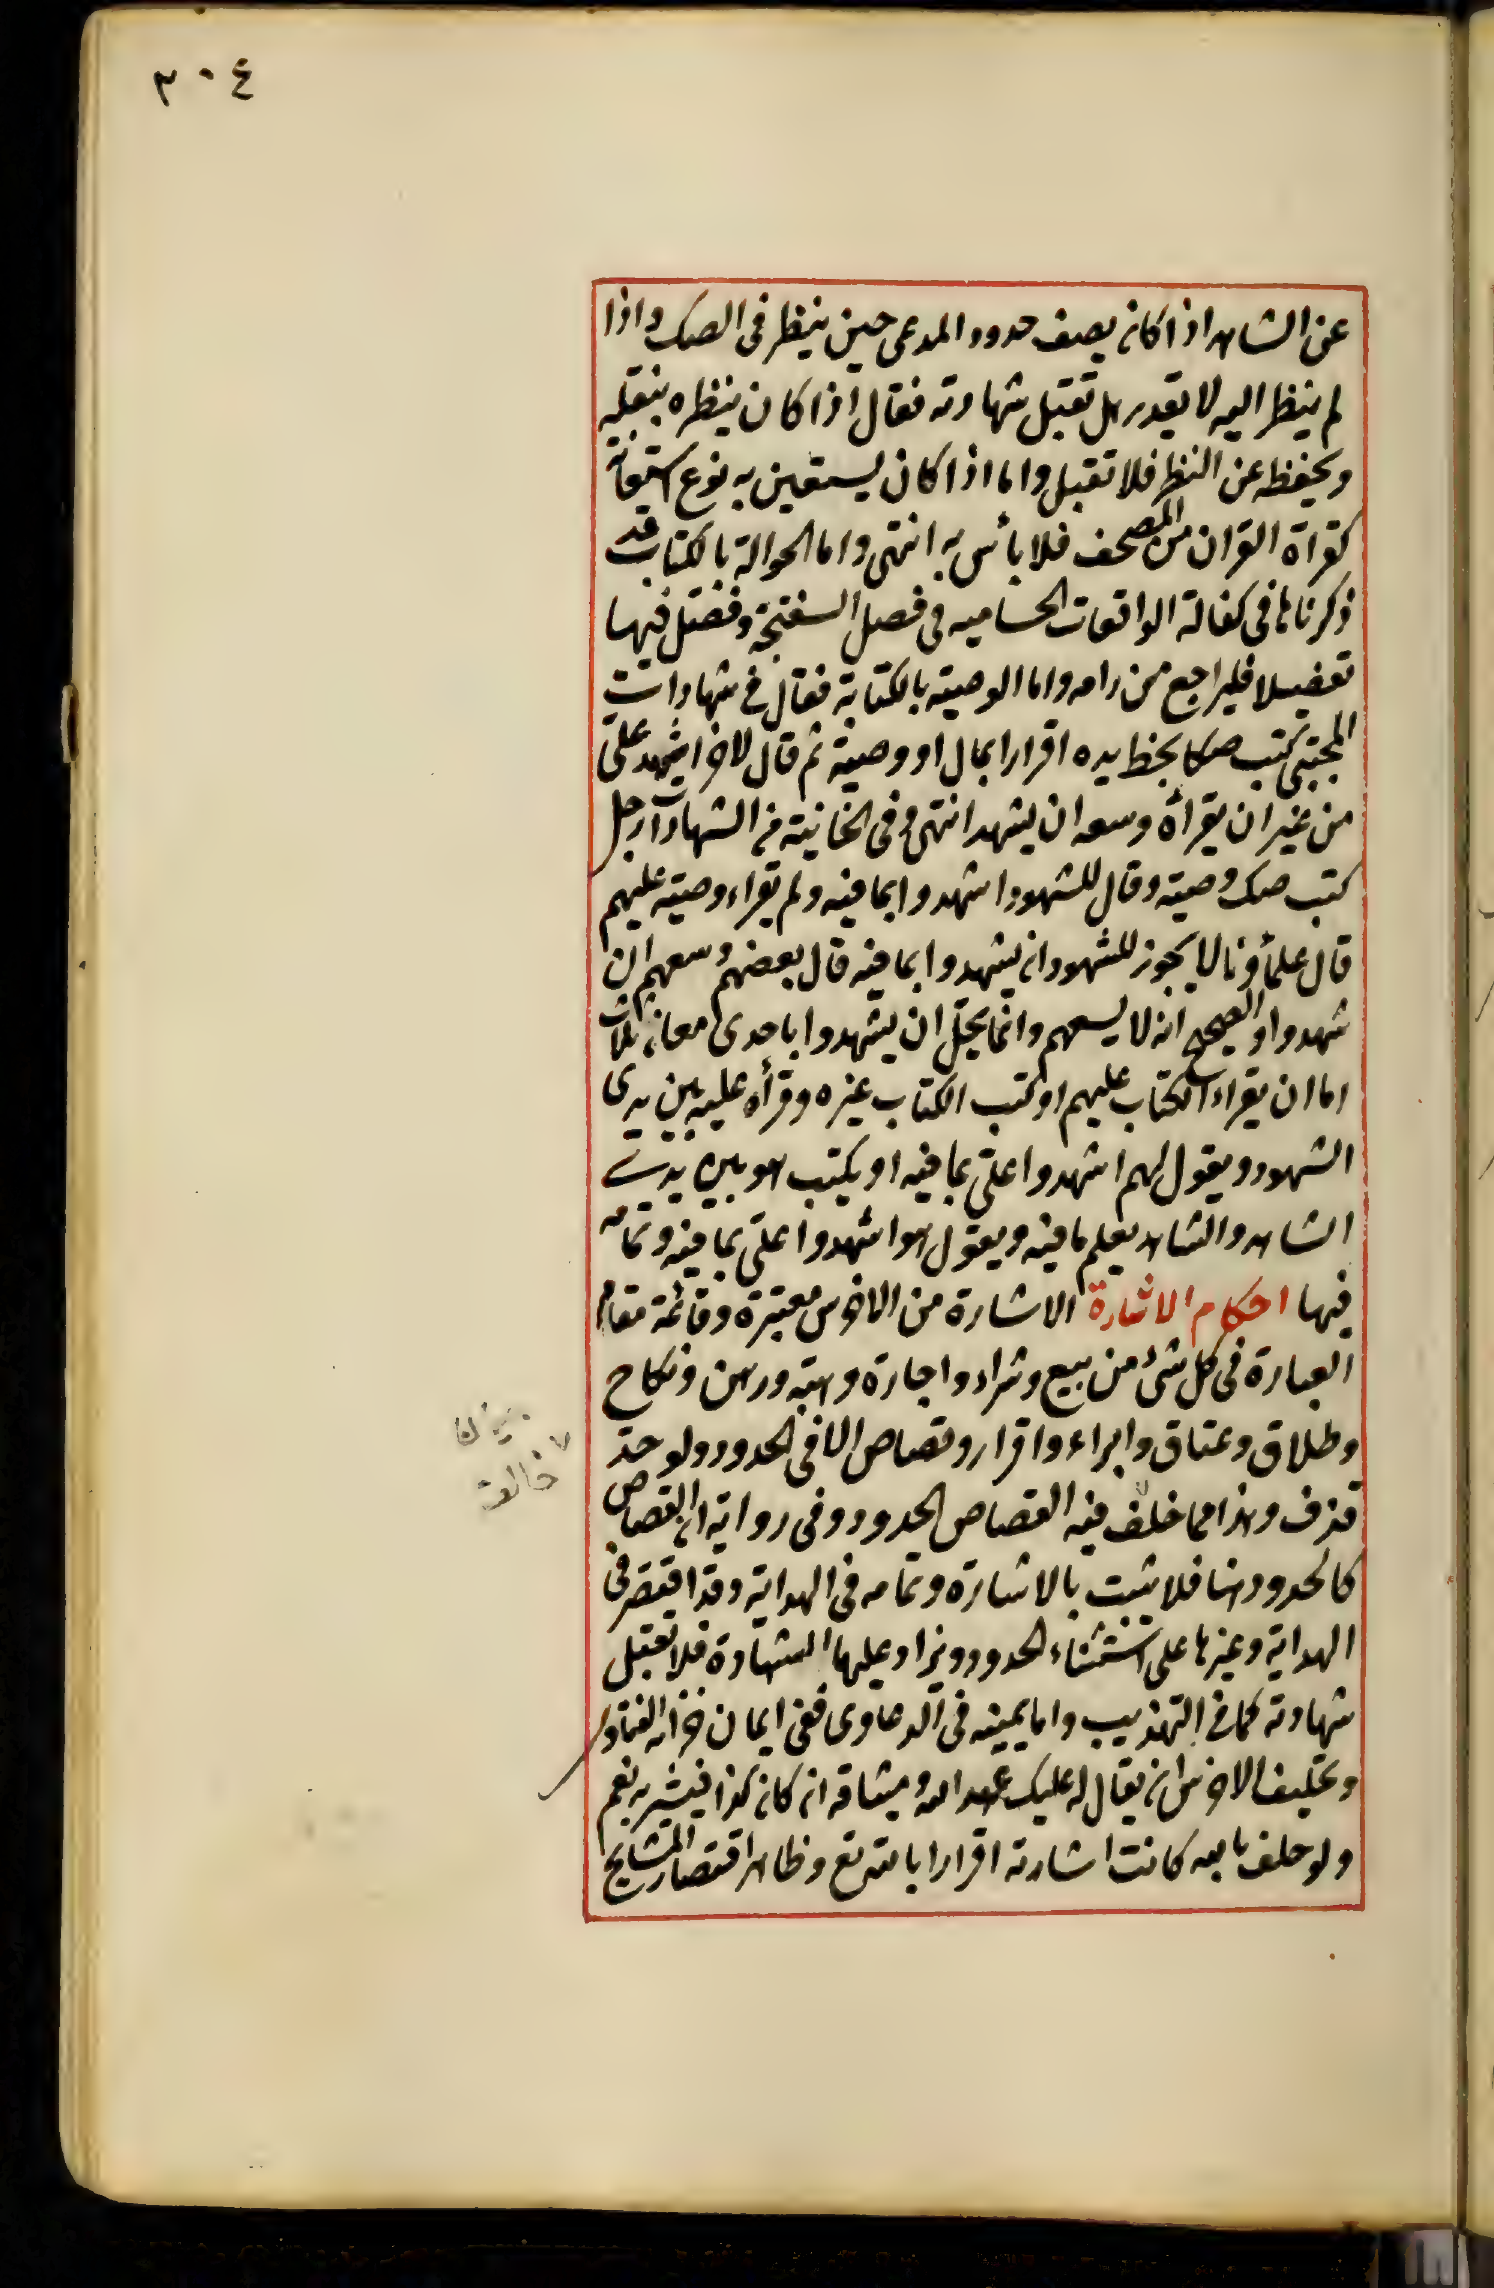 ٣٠٤
عن الشاهد اذا كان يصف حدود المدعى حين ينظر فى الصك واذا
لم ينظر اليه لا يقدر هل تقبل شهادته فقال اذا كان ينظره ينقله
ويحفظه عن النظر فلا تقبل واما اذا كان يستعين به نوع استعانة
كقراة القران من المصحف فلا بأس به انتهى واما الحوالة بالكتاب قد
ذكرناها فى كفالة الواقعات الحساميه فى فصل السفتجة وفصّل فيها
تفصيلا فليراجع من رامه واما الوصية بالكتابة فقال فى شهادات
المجتبى كتب صكا بخط يده اقرارا بمال او وصية ثم قال لاخر اشهد علىّ
من غير ان يقرأه وسعه ان يشهد انتهى وفى الخانية من الشهادات رجل
كتب صك وصية وقال للشهود اشهدوا بما فيه ولم يقراء وصيته عليهم
قال علماؤنا لا يجوز للشهود ان يشهدوا بما فيه قال بعضهم وسعهم ان
شهدوا والصحيح انه لا يسعهم وانما يحل ان يشهدوا باحدى معان ثلاث
اما ان يقراء الكتاب عليهم او كتب الكتاب غيره وقرأه عليه بين يدى
الشهود ويقول لهم اشهدوا علىّ بما فيه او يكتب هو بين يدى
الشاهد والشاهد يعلم ما فيه ويقول هو اشهدوا علىّ بما فيه وتمامه
فيها احكام الاشارة الاشارة من الاخرس معتبرة وقائمة مقام
العبارة فى كل شئ من بيع وشراء واجارة وهبة ورهن ونكاح
وطلاق وعتاق وابراء واقرار وقصاص الا فى الحدود ولو حد
قذف وهذا مما خلف فيه القصاص الحدود وفى رواية ان القصاص
كالحدود هنا فلا يثبت بالاشارة وتمامه فى الهداية وقد اقتصر فى
الهداية وغيرها على استثناء الحدود ويزاد عليها الشهادة فلا تقبل
شهادته كما فى التهذيب واما يمينه فى الدعاوى ففى ايمان خزانه الفتاوى
وتحليف الاخرس ان يقال له عليك عهد الله وميثاقه ان كان كذا فيشير بنعم
ولو حلف بالله كانت اشارته اقرارا بالله تع وظاهر اقتصار المشايخ
خالف